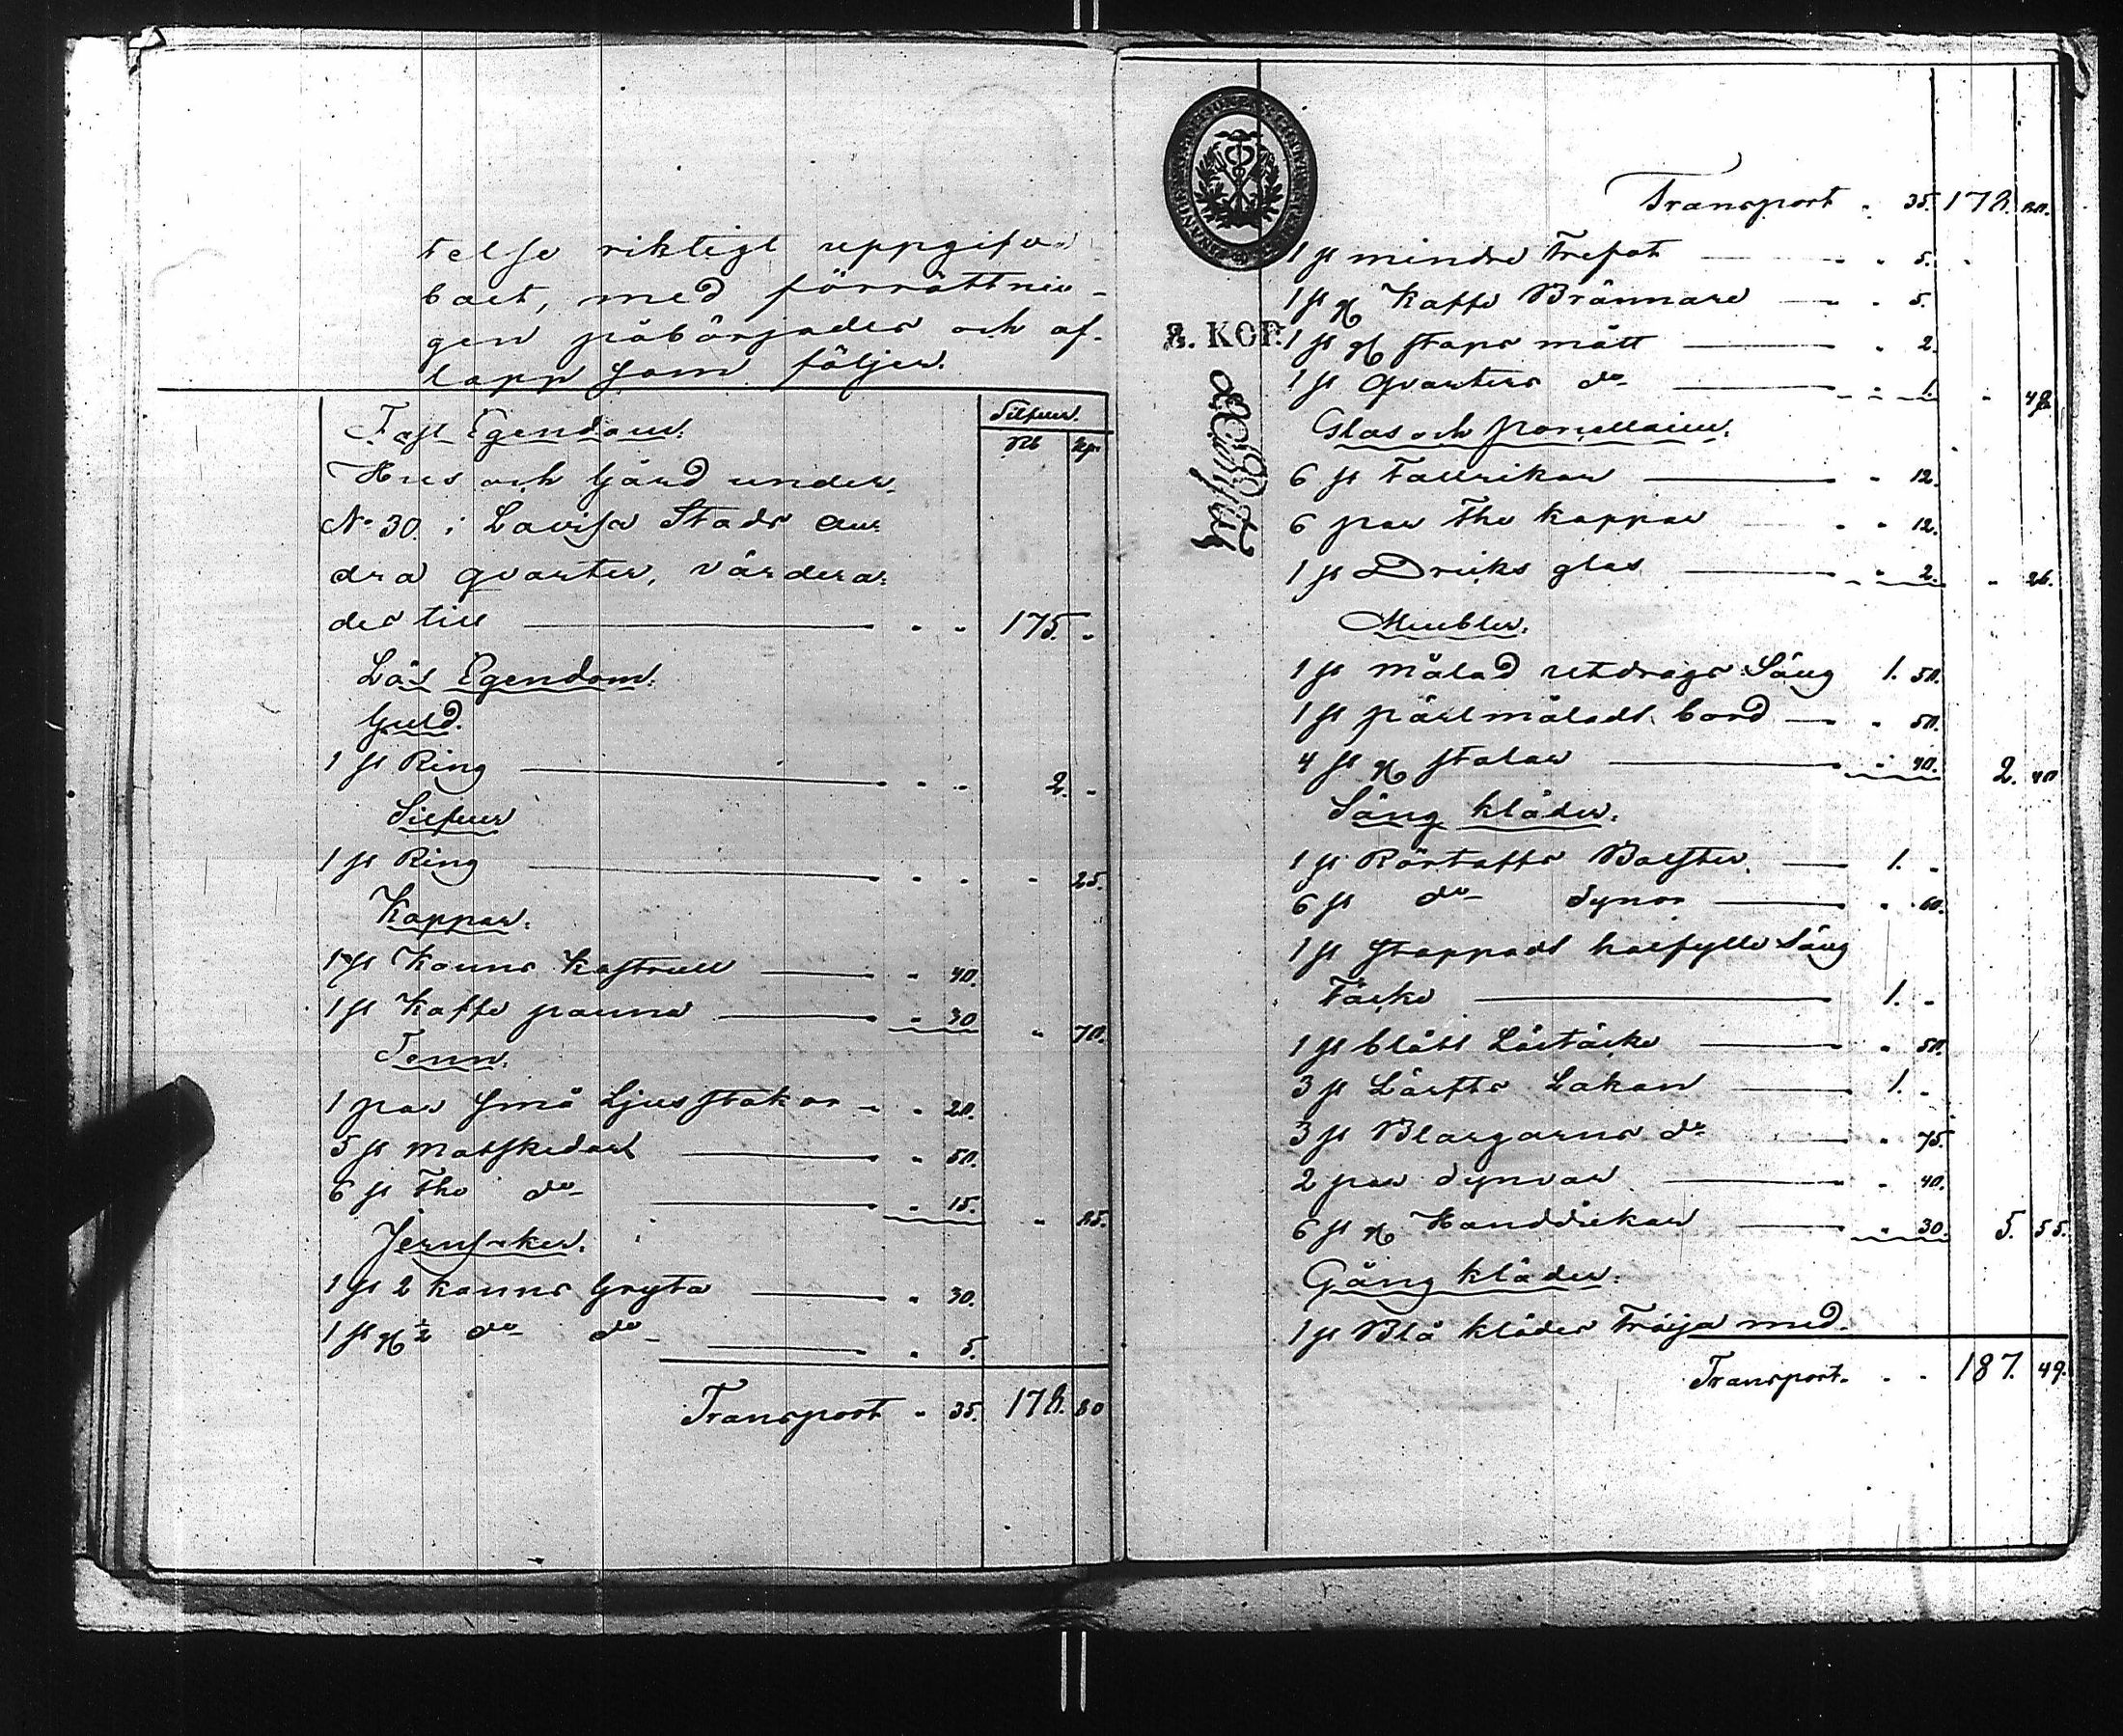 telse riktigt uppgifva
boet, med förrättnin-
gen påbörjades och af-
lopp som följer.
Silfver.
Rb Kp.
Fast Egendom:
Hus och Gård under
No 30 i Lovisa Stads An-
dra qvarter, värdera-
des till " " 175. "
Lös Egendom.
Guld.
1 st Ring " " 2. "
Silfver
1 st Ring " " " 25.
Koppar.
1 st Kanns Kastrull " 40.
1 st Kaffe panna " 30 " 70.
Tenn.
1 par små Ljusstakar " 20.
5 st Matskedar " 50.
6 st The do " 15. " 85.
Jernsaker.
1 st 2 kanns Gryta " 30.
1 st 1/2 do do " 5.
Transport " 35. 178. 80
Transport " 35. 178. 80.
1 st mindre Trefot " 5.
1 st Kaffe Brännare " 5.
1 st stops mått " 2.
1 st Qvarters do " 1. " 48.
Glas och Porcellain.
6 st Tallrikar " 12.
6 par The koppar " 12.
1 st Dricks glas " 2. " 26.
Meubler.
1 st målad utdrags Säng 1. 50.
1 st pärlmåladt bord " 50.
4 st stolar " 40. 2. 40
Säng kläder.
1 st Bolster 1. "
6 st do dynor " 60.
1 st stoppadt halfylle Säng
Täcke 1. "
1 st blått Löstäcke " 50.
3 st Lärfts Lakan 1. "
3 st Blargarns do " 75.
2 par dynvar " 40.
6 st Handdukar " 30. 5. 55.
Gång kläder.
1 st Blå klädes Tröja med
Transport " " 187. 49.
KOP.